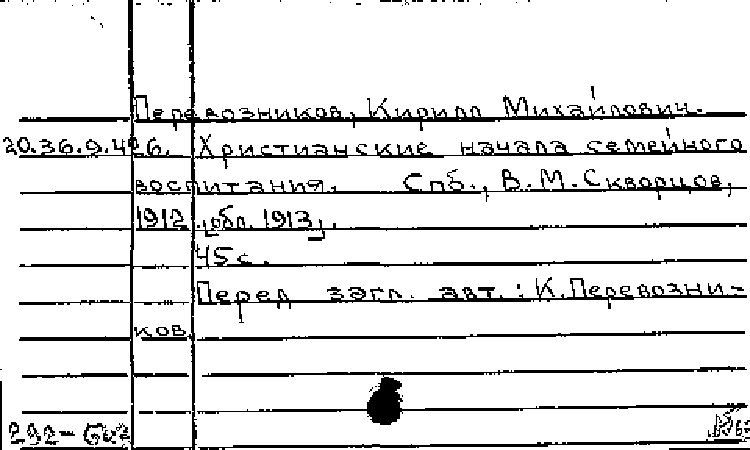 Перевозников, Кирилл Михайлович.
20.36.9.426. Христианские начала семейного
воспитания. Спб., В.М.Скворцов,
1912 [обл. 1913].
45 с.
Перед загл. авт.: К.Перевозни-
ков.
292-